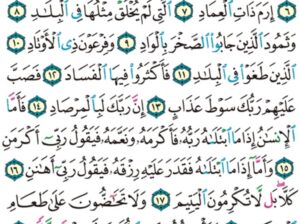 ٦ إِرَمَ ذَاتِ ٱلْعِمَادِ ٧ ٱلَّتِى لَمْ يُخْلَقْ مِثْلُهَا فِى ٱلْبِلَـٰدِ ٨
وَثَمُودَ ٱلَّذِينَ جَابُوا۟ ٱلصَّخْرَ بِٱلْوَادِ ٩ وَفِرْعَوْنَ ذِى ٱلْأَوْتَادِ ١٠
ٱلَّذِينَ طَغَوْا۟ فِى ٱلْبِلَـٰدِ ١١ فَأَكْثَرُوا۟ فِيهَا ٱلْفَسَادَ ١٢ فَصَبَّ
عَلَيْهِمْ رَبُّكَ سَوْطَ عَذَابٍ ١٣ إِنَّ رَبَّكَ لَبِٱلْمِرْصَادِ ١٤ فَأَمَّا
ٱلْإِنسَـٰنُ إِذَا مَا ٱبْتَلَىٰهُ رَبُّهُۥ فَأَكْرَمَهُۥ وَنَعَّمَهُۥ فَيَقُولُ رَبِّىٓ أَكْرَمَنِ
١٥ وَأَمَّآ إِذَا مَا ٱبْتَلَىٰهُ فَقَدَرَ عَلَيْهِ رِزْقَهُۥ فَيَقُولُ رَبِّىٓ أَهَـٰنَنِ ١٦
كَلَّا بَل لَّا تُكْرِمُونَ ٱلْيَتِيمَ ١٧ وَلَا تَحَـٰٓضُّونَ عَلَىٰ طَعَامِ